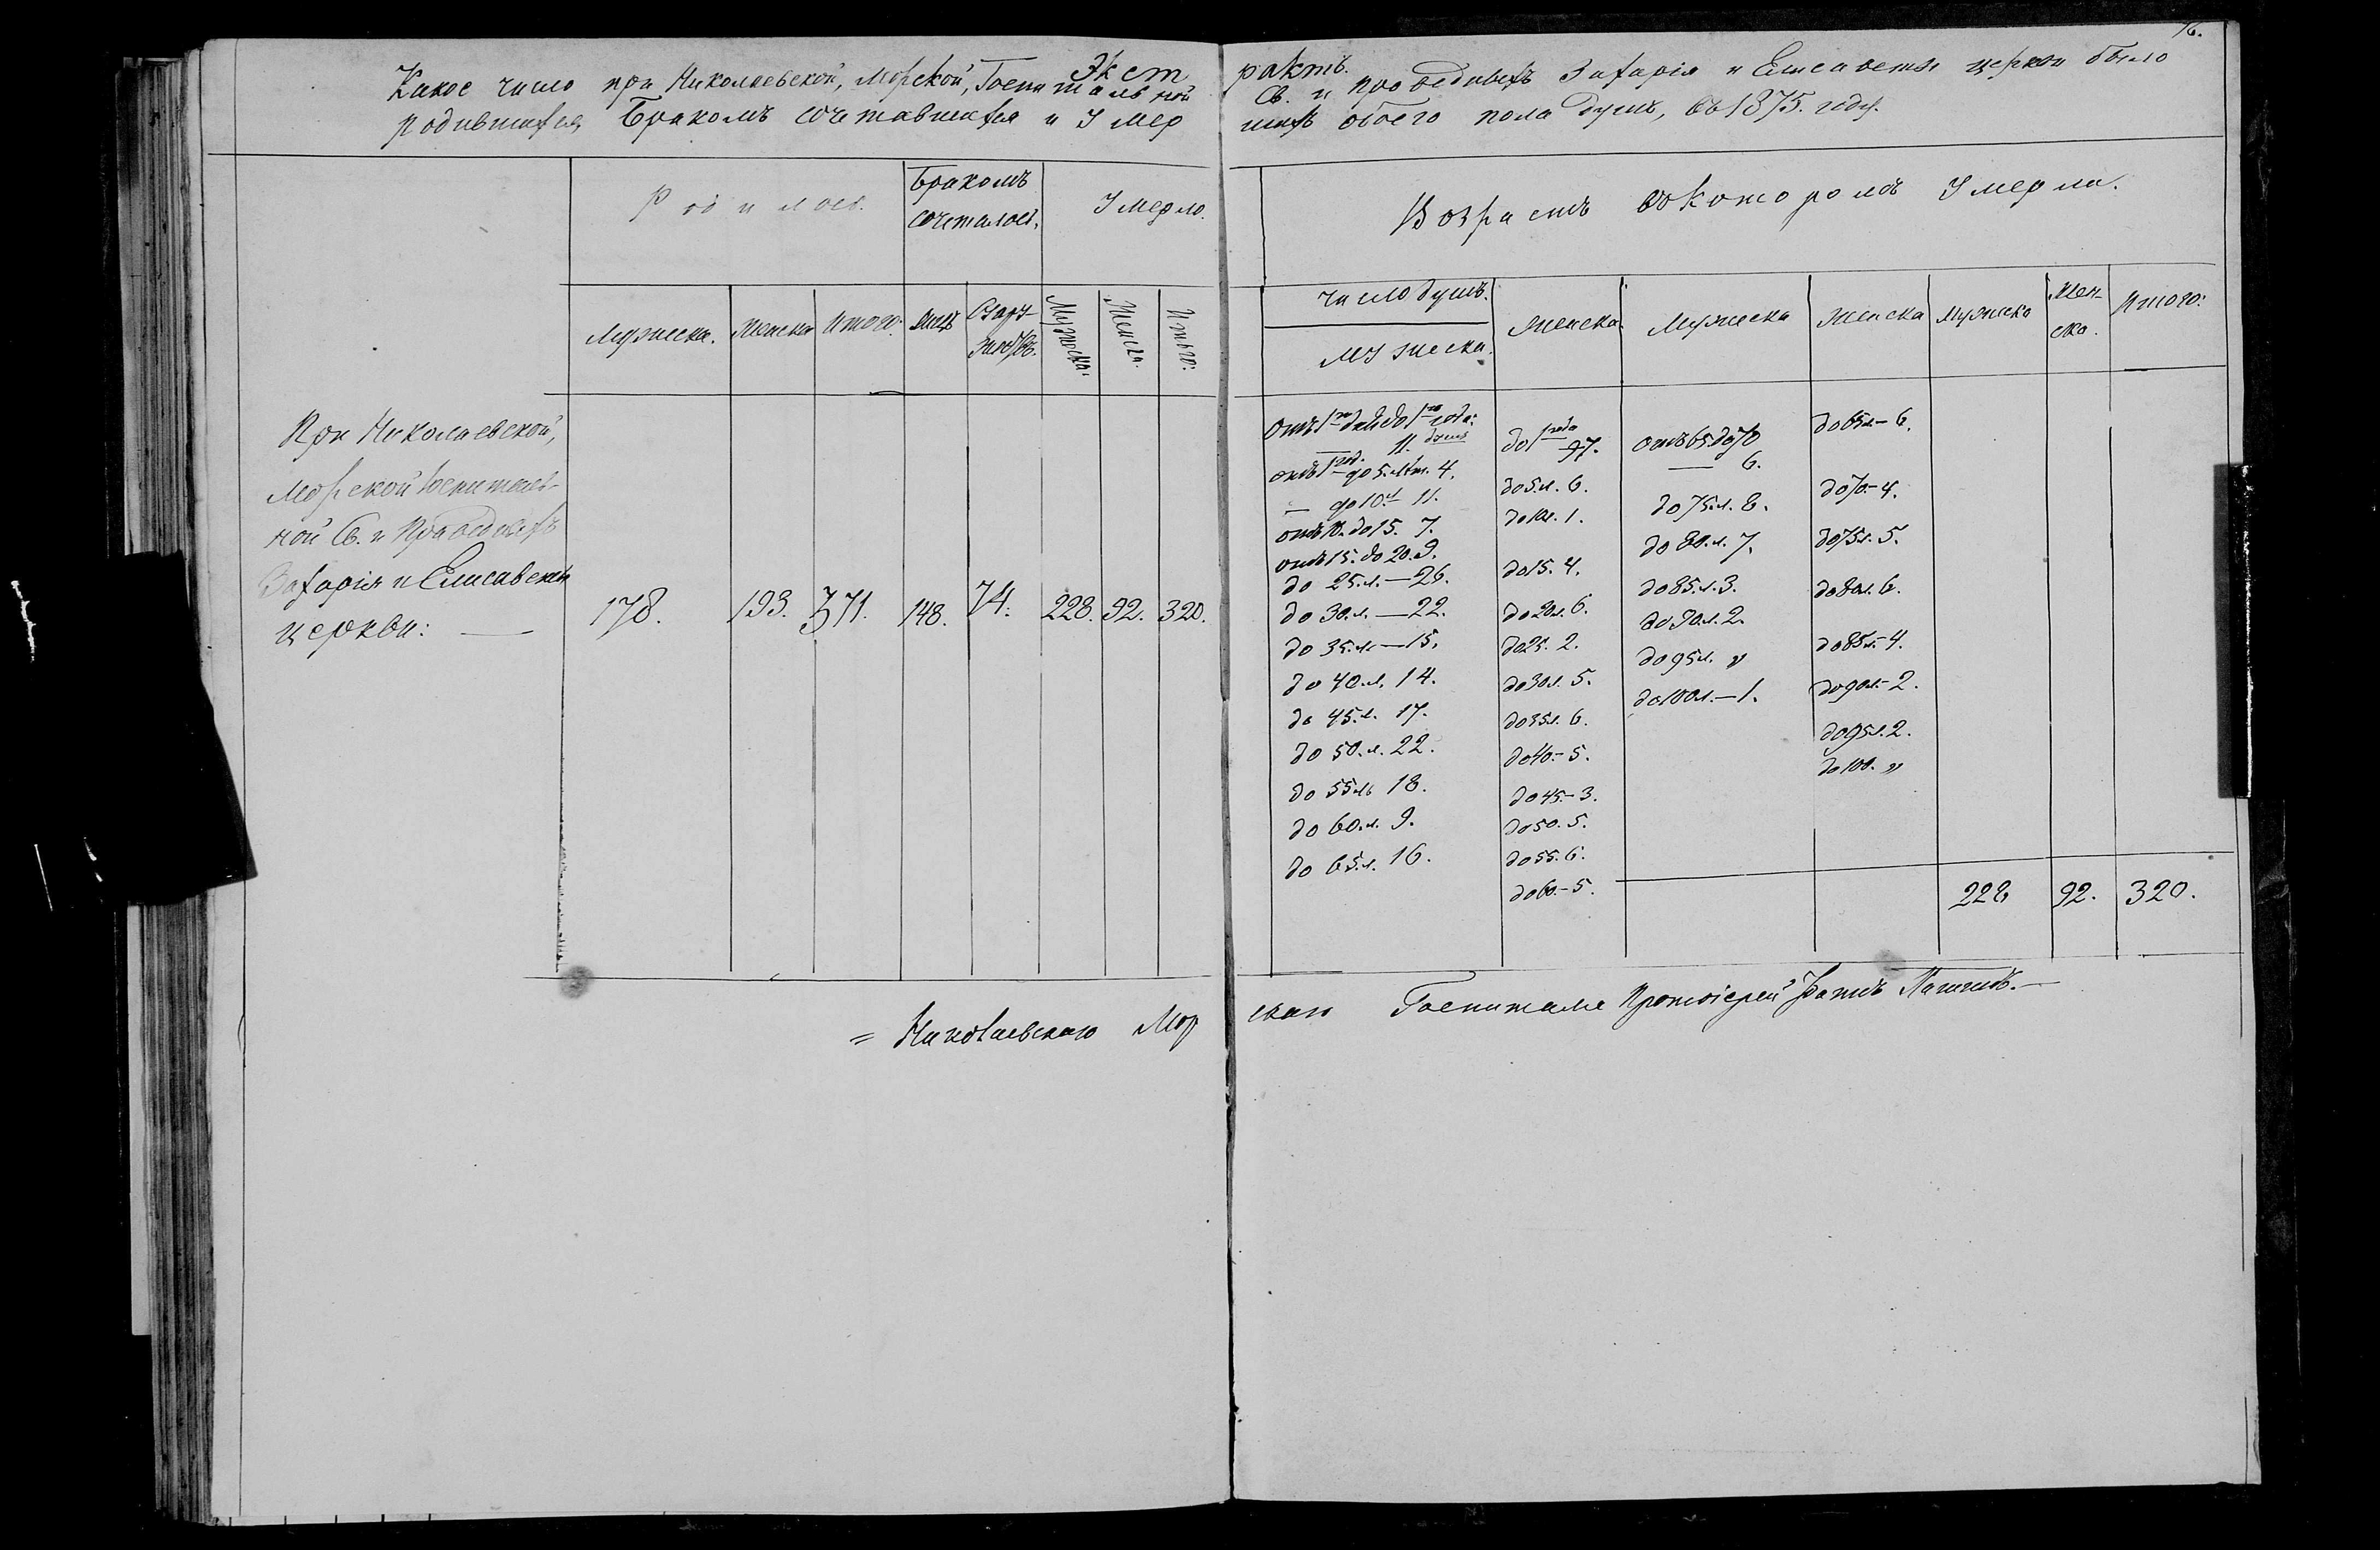 76.
Экст рактъ.
Какое число при Николаевской, Морской, Госпитальной Св. и праведныхъ Захарія и Елисаветы церкви было
родившихся, Бракомъ сочетавшихся и Умер шихъ обоего пола душъ, въ 1875. году.
Родилось. Бракомъ сочеталось. Умерло.
Мужеска. Женска Итого: Лицъ Мужеска. Женска. Итого:
При Николаевской,
Морской Госпиталь-
ной Св. и Праведныхъ
Захарія и Елисаветы
церкви: — 178. 193. 371. 148. 74. 228. 92. 320.
Возрастъ въ которомъ Умерли.
Число душъ.
Мужеска. Женска. Мужеска Женска Мужеско Жен-ско. Итого:
Отъ 1го дня до 1го года:
11. душъ
отъ 1 год. до 5. лѣт. 4.
— до 10. л. 11.
отъ 10. до 15. 7.
отъ 15. до 20. 9.
до 25. л. — 26.
до 30. л. — 22.
до 35. л. — 15.
до 40. л. 14.
до 45. л. 17.
до 50. л. 22.
до 55 лѣ 18.
до 60. л. 9.
до 65. л. 16.
до 1 года
до 5. л. 6.
до 10 л. 1.
до 15. 4.
до 20 л. 6.
до 25. 2.
до 30 л. 5.
до 35 л. 6.
до 40. – 5.
до 45. – 3.
до 50. 5.
до 55. 6.
до 60. – 5.
отъ 65 до 70
— 6.
до 75. л. 8.
до 80. л. 7.
до 85. л. 3.
до 90. л. 2.
до 95 л. "
до 100 л. — 1.
до 65 л. – 6.
до 70. – 4.
до 75 л. 5.
до 80 л. 6.
до 85 л. – 4.
до 90 л. – 2.
до 95 л. 2.
до 100. "
228 92. 320.
= Николаевскаго Мор скаго Госпиталя Протоіерей